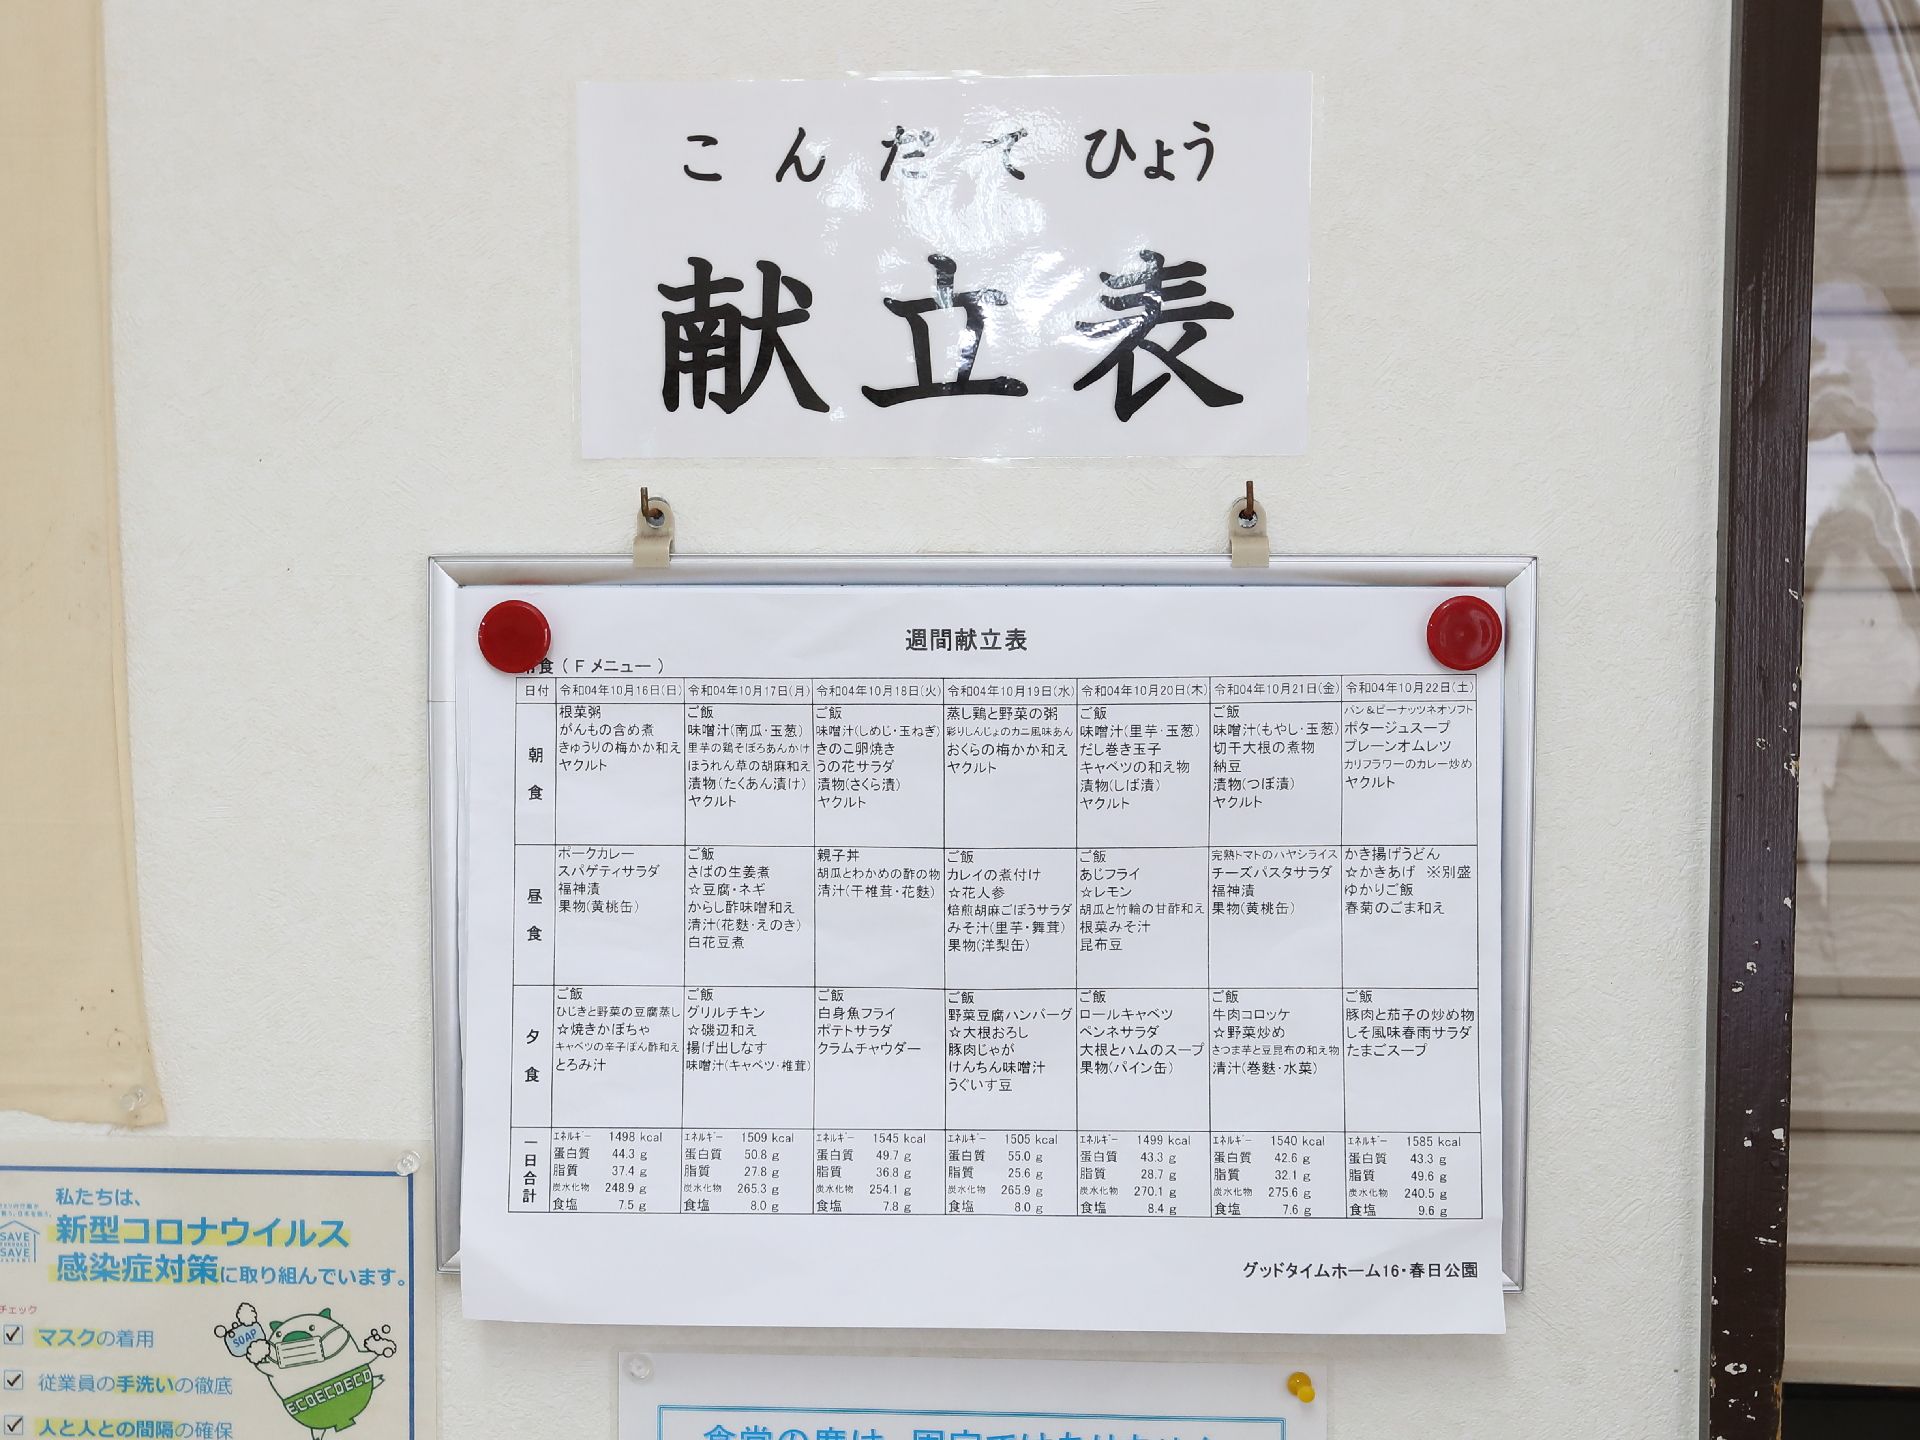 こんだてひょう
献立表
週間献立表
食（Ｆメニュー）
日付 令和04年10月16日(日) 令和04年10月17日(月) 令和04年10月18日(火) 令和04年10月19日(水) 令和04年10月20日(木) 令和04年10月21日(金) 令和04年10月22日(土)
朝食
根菜粥
がんもの含め煮
きゅうりの梅かか和え
ヤクルト
ご飯
味噌汁(南瓜・玉葱)
里芋の鶏そぼろあんかけ
ほうれん草の胡麻和え
漬物(たくあん漬け)
ヤクルト
ご飯
味噌汁(しめじ・玉ねぎ)
きのこ卵焼き
うの花サラダ
漬物(さくら漬)
ヤクルト
蒸し鶏と野菜の粥
彩りしんじょのカニ風味あん
おくらの梅かか和え
ヤクルト
ご飯
味噌汁(里芋・玉葱)
だし巻き玉子
キャベツの和え物
漬物(しば漬)
ヤクルト
ご飯
味噌汁(もやし・玉葱)
切干大根の煮物
納豆
漬物(つぼ漬)
ヤクルト
パン＆ピーナッツネオソフト
ポタージュスープ
プレーンオムレツ
カリフラワーのカレー炒め
ヤクルト
昼食
ポークカレー
スパゲティサラダ
福神漬
果物(黄桃缶)
ご飯
さばの生姜煮
☆豆腐・ネギ
からし酢味噌和え
清汁(花麩・えのき)
白花豆煮
親子丼
胡瓜とわかめの酢の物
清汁(干椎茸・花麩)
ご飯
カレイの煮付け
☆花人参
焙煎胡麻ごぼうサラダ
みそ汁(里芋・舞茸)
果物(洋梨缶)
ご飯
あじフライ
☆レモン
胡瓜と竹輪の甘酢和え
根菜みそ汁
昆布豆
完熟トマトのハヤシライス
チーズパスタサラダ
福神漬
果物(黄桃缶)
かき揚げうどん
☆かきあげ ※別盛
ゆかりご飯
春菊のごま和え
夕食
ご飯
ひじきと野菜の豆腐蒸し
☆焼きかぼちゃ
キャベツの辛子ぽん酢和え
とろみ汁
ご飯
グリルチキン
☆磯辺和え
揚げ出しなす
味噌汁(キャベツ・椎茸)
ご飯
白身魚フライ
ポテトサラダ
クラムチャウダー
ご飯
野菜豆腐ハンバーグ
☆大根おろし
豚肉じゃが
けんちん味噌汁
うぐいす豆
ご飯
ロールキャベツ
ペンネサラダ
大根とハムのスープ
果物(パイン缶)
ご飯
牛肉コロッケ
☆野菜炒め
さつま芋と豆昆布の和え物
清汁(巻麩・水菜)
ご飯
豚肉と茄子の炒め物
しそ風味春雨サラダ
たまごスープ
一日合計
エネルギー 1498 kcal エネルギー 1509 kcal エネルギー 1545 kcal エネルギー 1505 kcal エネルギー 1499 kcal エネルギー 1540 kcal エネルギー 1585 kcal
蛋白質 44.3 g 蛋白質 50.8 g 蛋白質 49.7 g 蛋白質 55.0 g 蛋白質 43.3 g 蛋白質 42.6 g 蛋白質 43.3 g
脂質 37.4 g 脂質 27.8 g 脂質 36.8 g 脂質 25.6 g 脂質 28.7 g 脂質 32.1 g 脂質 49.6 g
炭水化物 248.9 g 炭水化物 265.3 g 炭水化物 254.1 g 炭水化物 265.9 g 炭水化物 270.1 g 炭水化物 275.6 g 炭水化物 240.5 g
食塩 7.5 g 食塩 8.0 g 食塩 7.8 g 食塩 8.0 g 食塩 8.4 g 食塩 7.6 g 食塩 9.6 g
グッドタイムホーム16・春日公園
私たちは、
新型コロナウイルス
感染症対策に取り組んでいます。
SAVE
SAVE
チェック
マスクの着用
従業員の手洗いの徹底
人と人との間隔の確保
SOAP
ECOECOECO